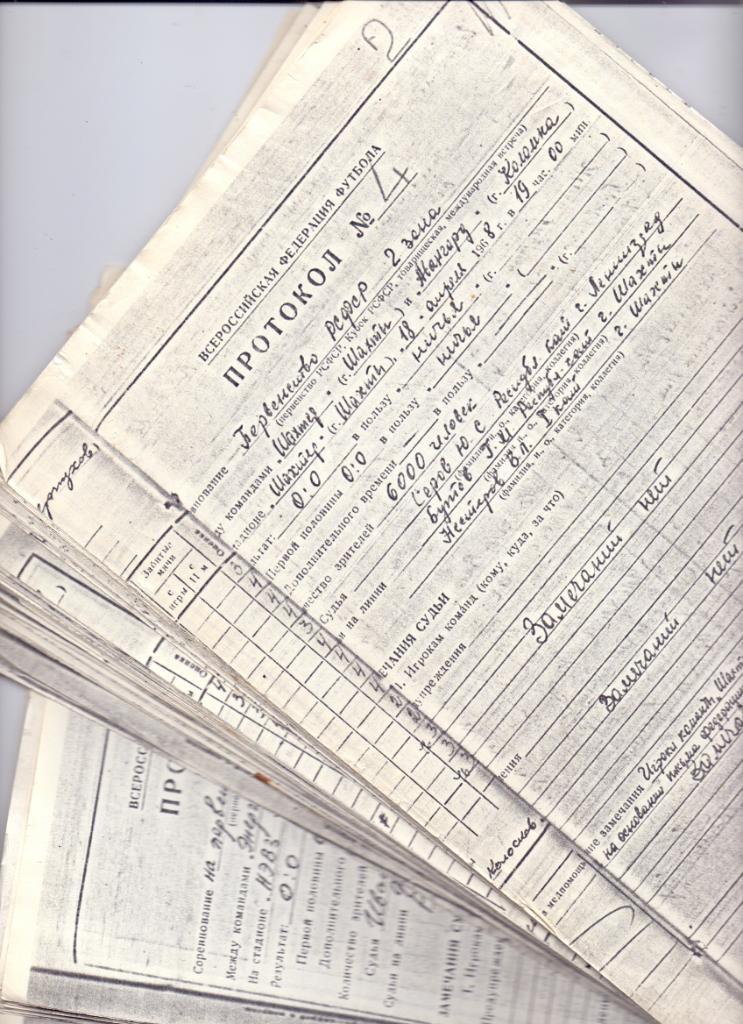 2
ВСЕРОССИЙСКАЯ ФЕДЕРАЦИЯ ФУТБОЛА
ПРОТОКОЛ № 4
нование Первенство РСФСР 2 зона
(первенство РСФСР, Кубок РСФСР, товарищеская, международная встреча)
ду командами „Шахтер“ (г. Шахты) и „Авангард“ (г. Коломна)
адионе „Шахтер“ (г. Шахты). 18 апреля 1968 г. в 19 час. 00 мин.
льтат: 0:0 в пользу ничья (г. )
Первой половины 0:0 в пользу ничья (г. )
Дополнительного времени — в пользу
чество зрителей 6000 человек
Судья Серов Ю С Республ. кат г. Ленинград
(фамилия, и., о., категория, коллегия)
и на линии Бутов Г.М. Республ. кат г. Шахты
(фамилия, и., о., категория, коллегия)
Нестеров В.П. I кат г. Шахты
(фамилия, и., о., категория, коллегия)
ЕЧАНИЯ СУДЬИ
1. Игрокам команд (кому, куда, за что)
упреждения Замечаний нет
ения Замечаний нет
ие замечания Игроки команды Шахт
на основании письма федерации
а медпомощь
Забитые мячи
с игры
с 11 м
Оценка
Колосков
Оценка
ВСЕРОСС
ПРО
Соревнование на перве
Между командами „Энер
На стадионе „НЭВЗ
Результат: 0:0
Первой половины
Дополнительного
Количество зрителей
Судья
Судьи на линии
ЗАМЕЧАНИЯ СУ
1. Игрока
Предупрежде